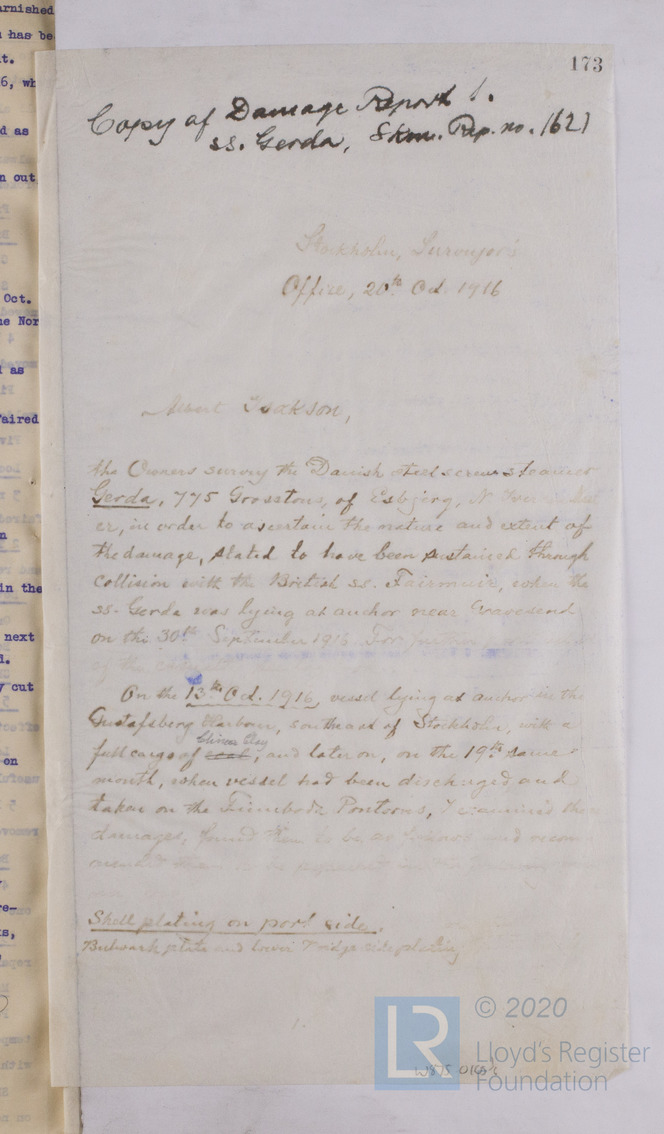 173
Copy of Damage Report 1.
ss. Gerda, Skm. Rep. no. 1621
Stockholm, Surveyor's
Office, 20th Oct. 1916
Albert Isakson,
the Owners survey the Danish steel screw steamer
Gerda, 775 Grosstons, of Esbjerg, N.
er, in order to ascertain the nature and extent of
the damage, stated to have been sustained through
collision with the British ss. Fairmuir, when the
ss. Gerda was lying at anchor near Gravesend
on the 30th September 1916. For
of the
On the 13th Oct. 1916, vessel lying at anchor in the
Gustafsberg Harbour, southeast of Stockholm, with a
China Clay
full cargo of coal, and later on, on the 19th same
month, when vessel had been discharged and
taken on the Finnboda Pontoons, I examined the
damages, found them to be as follows and recom
mended them to be repaired
Shell plating on port side.
Bulwark plate and lower bridge side plating
W875 0163
LR
© 2020
Lloyd's Register
Foundation
arnished
has be
t.
6, wh
d as
n out
Oct.
he Nor
d as
faired
n
in the
next
d.
y cut
on
re-
ks,